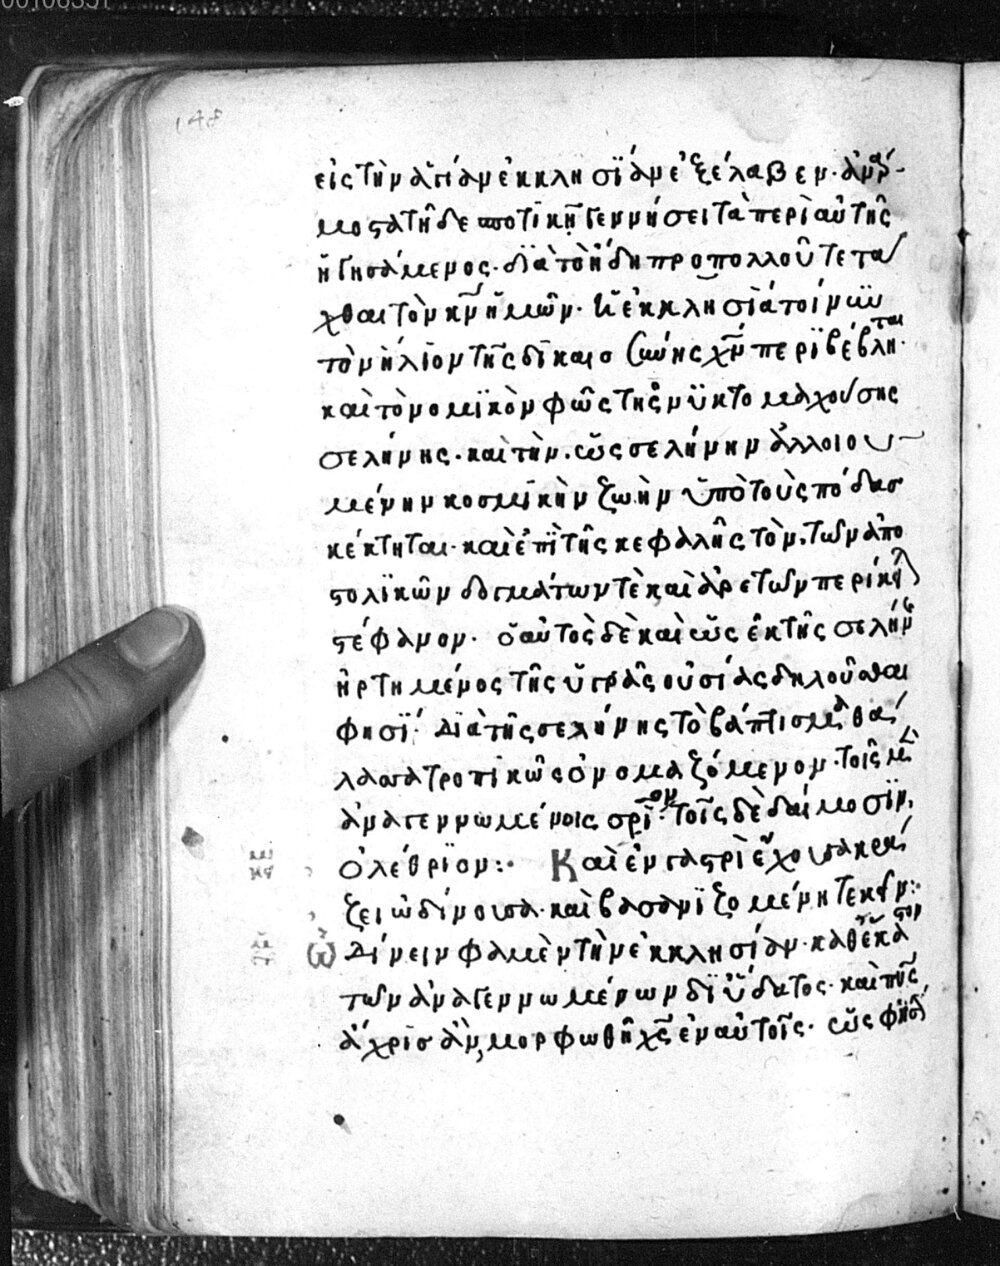 148
εἰς τὴν ἁγίαν ἐκκλησΐαν ἐξέλαβεν· ἀναρ-
μοστα τῆ δεσποτικῆ γεννήσει τὰ περὶ αὐτῆς
ἡγησάμενος· διὰ τὸ ἤδη προπολλοῦ τετά
χθαι τὸν κν ἡμῶν· ἡ ἐκκλησία τοίνυν
τὸν ἥλιον τῆς δικαιοσύνης χν περιβέβληται·
καὶ τὸ νομϊκὸν φῶς τῆς νϋκτομαχούσης
σελήνης· καὶ τὴν· ὡς σελήνην ἀλλοιου
μένην κοσμϊκὴν ζωὴν ὑπὸ τοὺς πόδασ
κέκτηται· καὶ ἐπὶ τῆς κεφαλῆς τὸν· τῶν ἀπο
στολϊκῶν δογμάτων τὲ καὶ ἀρετῶν περίκει
στέφανον· ὁ αὐτὸς δὲ καὶ ὡς ἐκ τῆς σελήν
ἠρτημένος τῆς ὑγρᾶς οὐσίας δηλοῦσθαι
φησΐ· διὰ τῆς σελήνης τὸ βάπτισμα θά
λασσα τροπικῶς ὀνομαζόμενον· τοῖς μὲ
ἀναγεννωμένοις σριον· τοῖς δὲ δαίμοσϊν·
ὀλέθριον:· Καὶ ἐν γαστρὶ ἔχουσα κρά
ζει ὠδίνουσα· καὶ βασανϊζομένη τεκεῖν:·
Ὠδίνειν φαμὲν τὴν ἐκκλησίαν· καθ' ἕκαστον
τῶν ἀναγεννωμένων δι' ὕδατος· καὶ πνς
ἄχρισ ἂν μορφωθῆ χς ἐν αὐτοῖς· ὡς φησ
κει